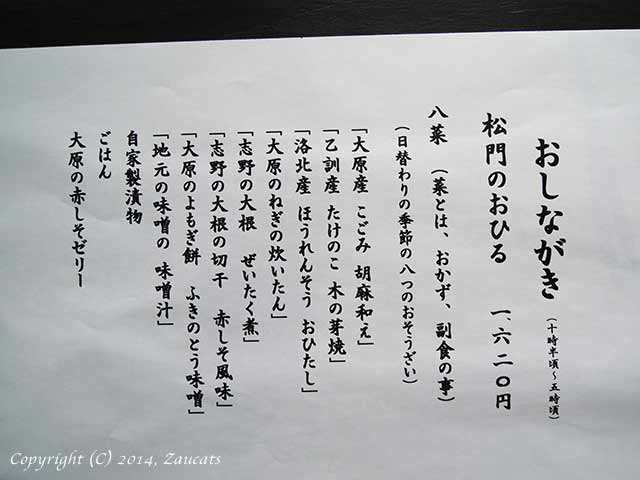 おしながき（十時半頃～五時頃）
松門のおひる　一、六二〇円
八菜　（菜とは、おかず、副食の事）
（日替わりの季節の八つのおそうざい）
「大原産　こごみ　胡麻和え」
「乙訓産　たけのこ　木の芽焼」
「洛北産　ほうれんそう　おひたし」
「大原のねぎの炊いたん」
「志野の大根　ぜいたく煮」
「志野の大根の切干　赤しそ風味」
「大原のよもぎ餅　ふきのとう味噌」
「地元の味噌の　味噌汁」
自家製漬物
ごはん
大原の赤しそゼリー
Copyright (C) 2014, Zaucats